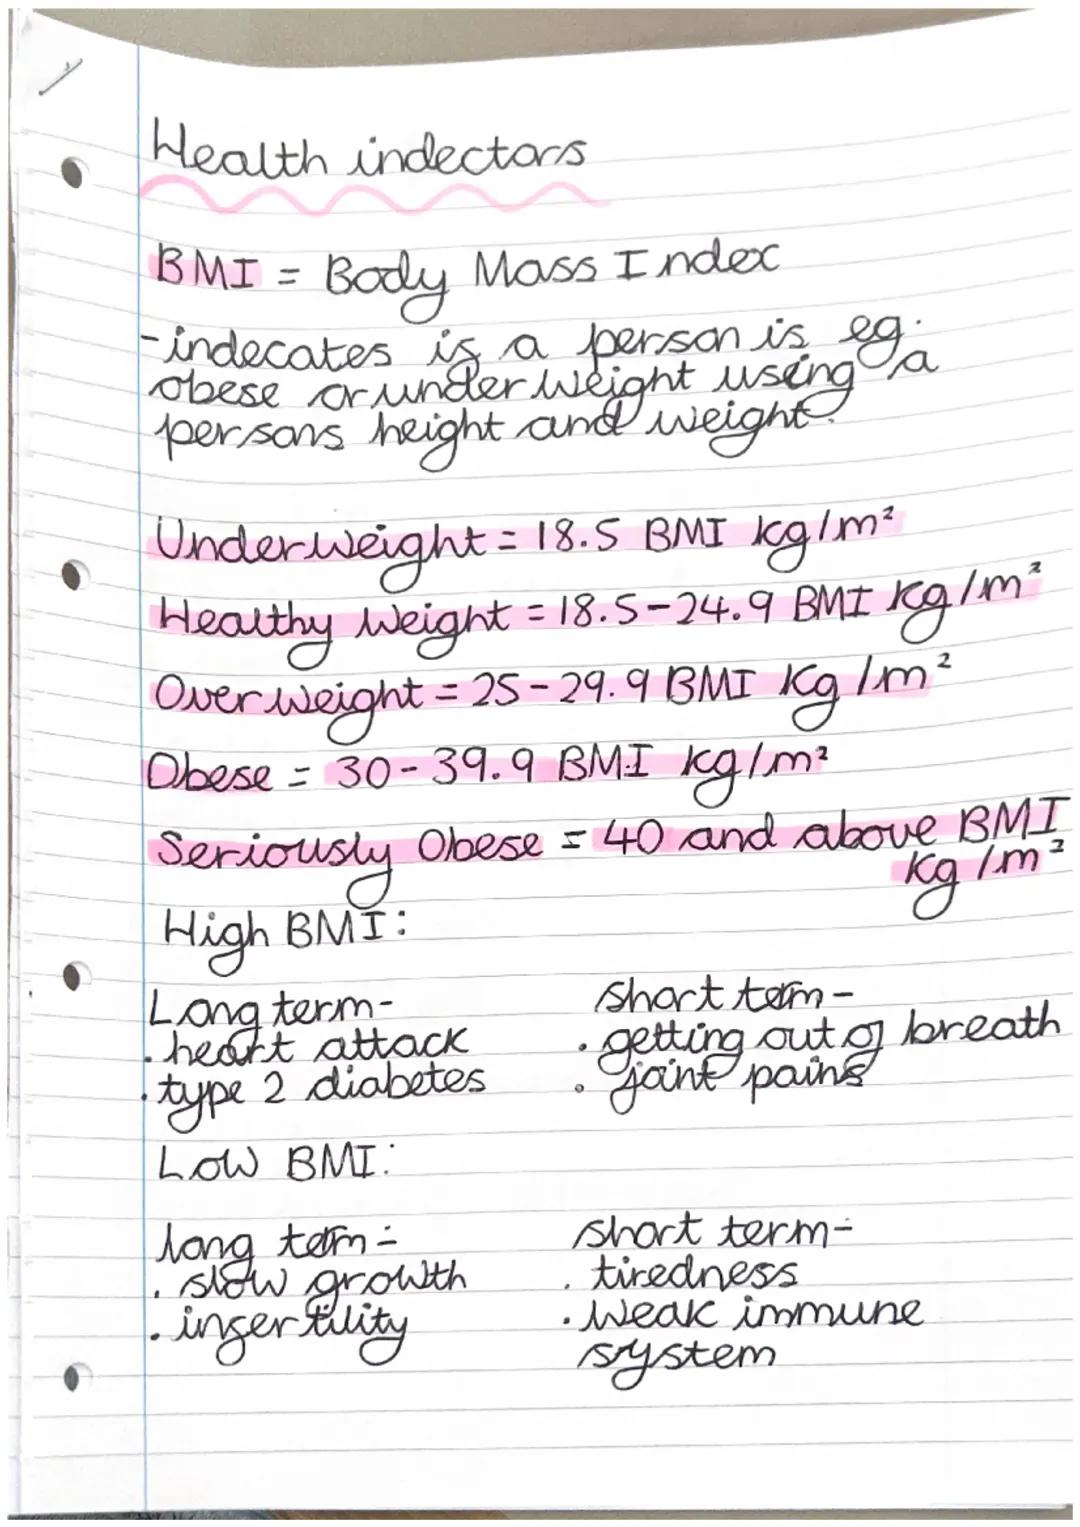 Health indectors
BMI = Body Mass Index
-indecates is a person is eg.
obese or underweight using a
persons height and weight.
Underweight = 18.5 BMI kg/m²
Healthy weight = 18.5-24.9 BMI kg/m²
Overweight = 25-29.9 BMI kg/m²
Obese = 30-39.9 BMI kg/m²
Seriously Obese = 40 and above BMI
kg/m²
High BMI:
Long term-
· heart attack
· type 2 diabetes
short term-
· getting out of breath
· joint pains
Low BMI:
long term-
· slow growth
· infertility
short term-
· tiredness
· weak immune
system